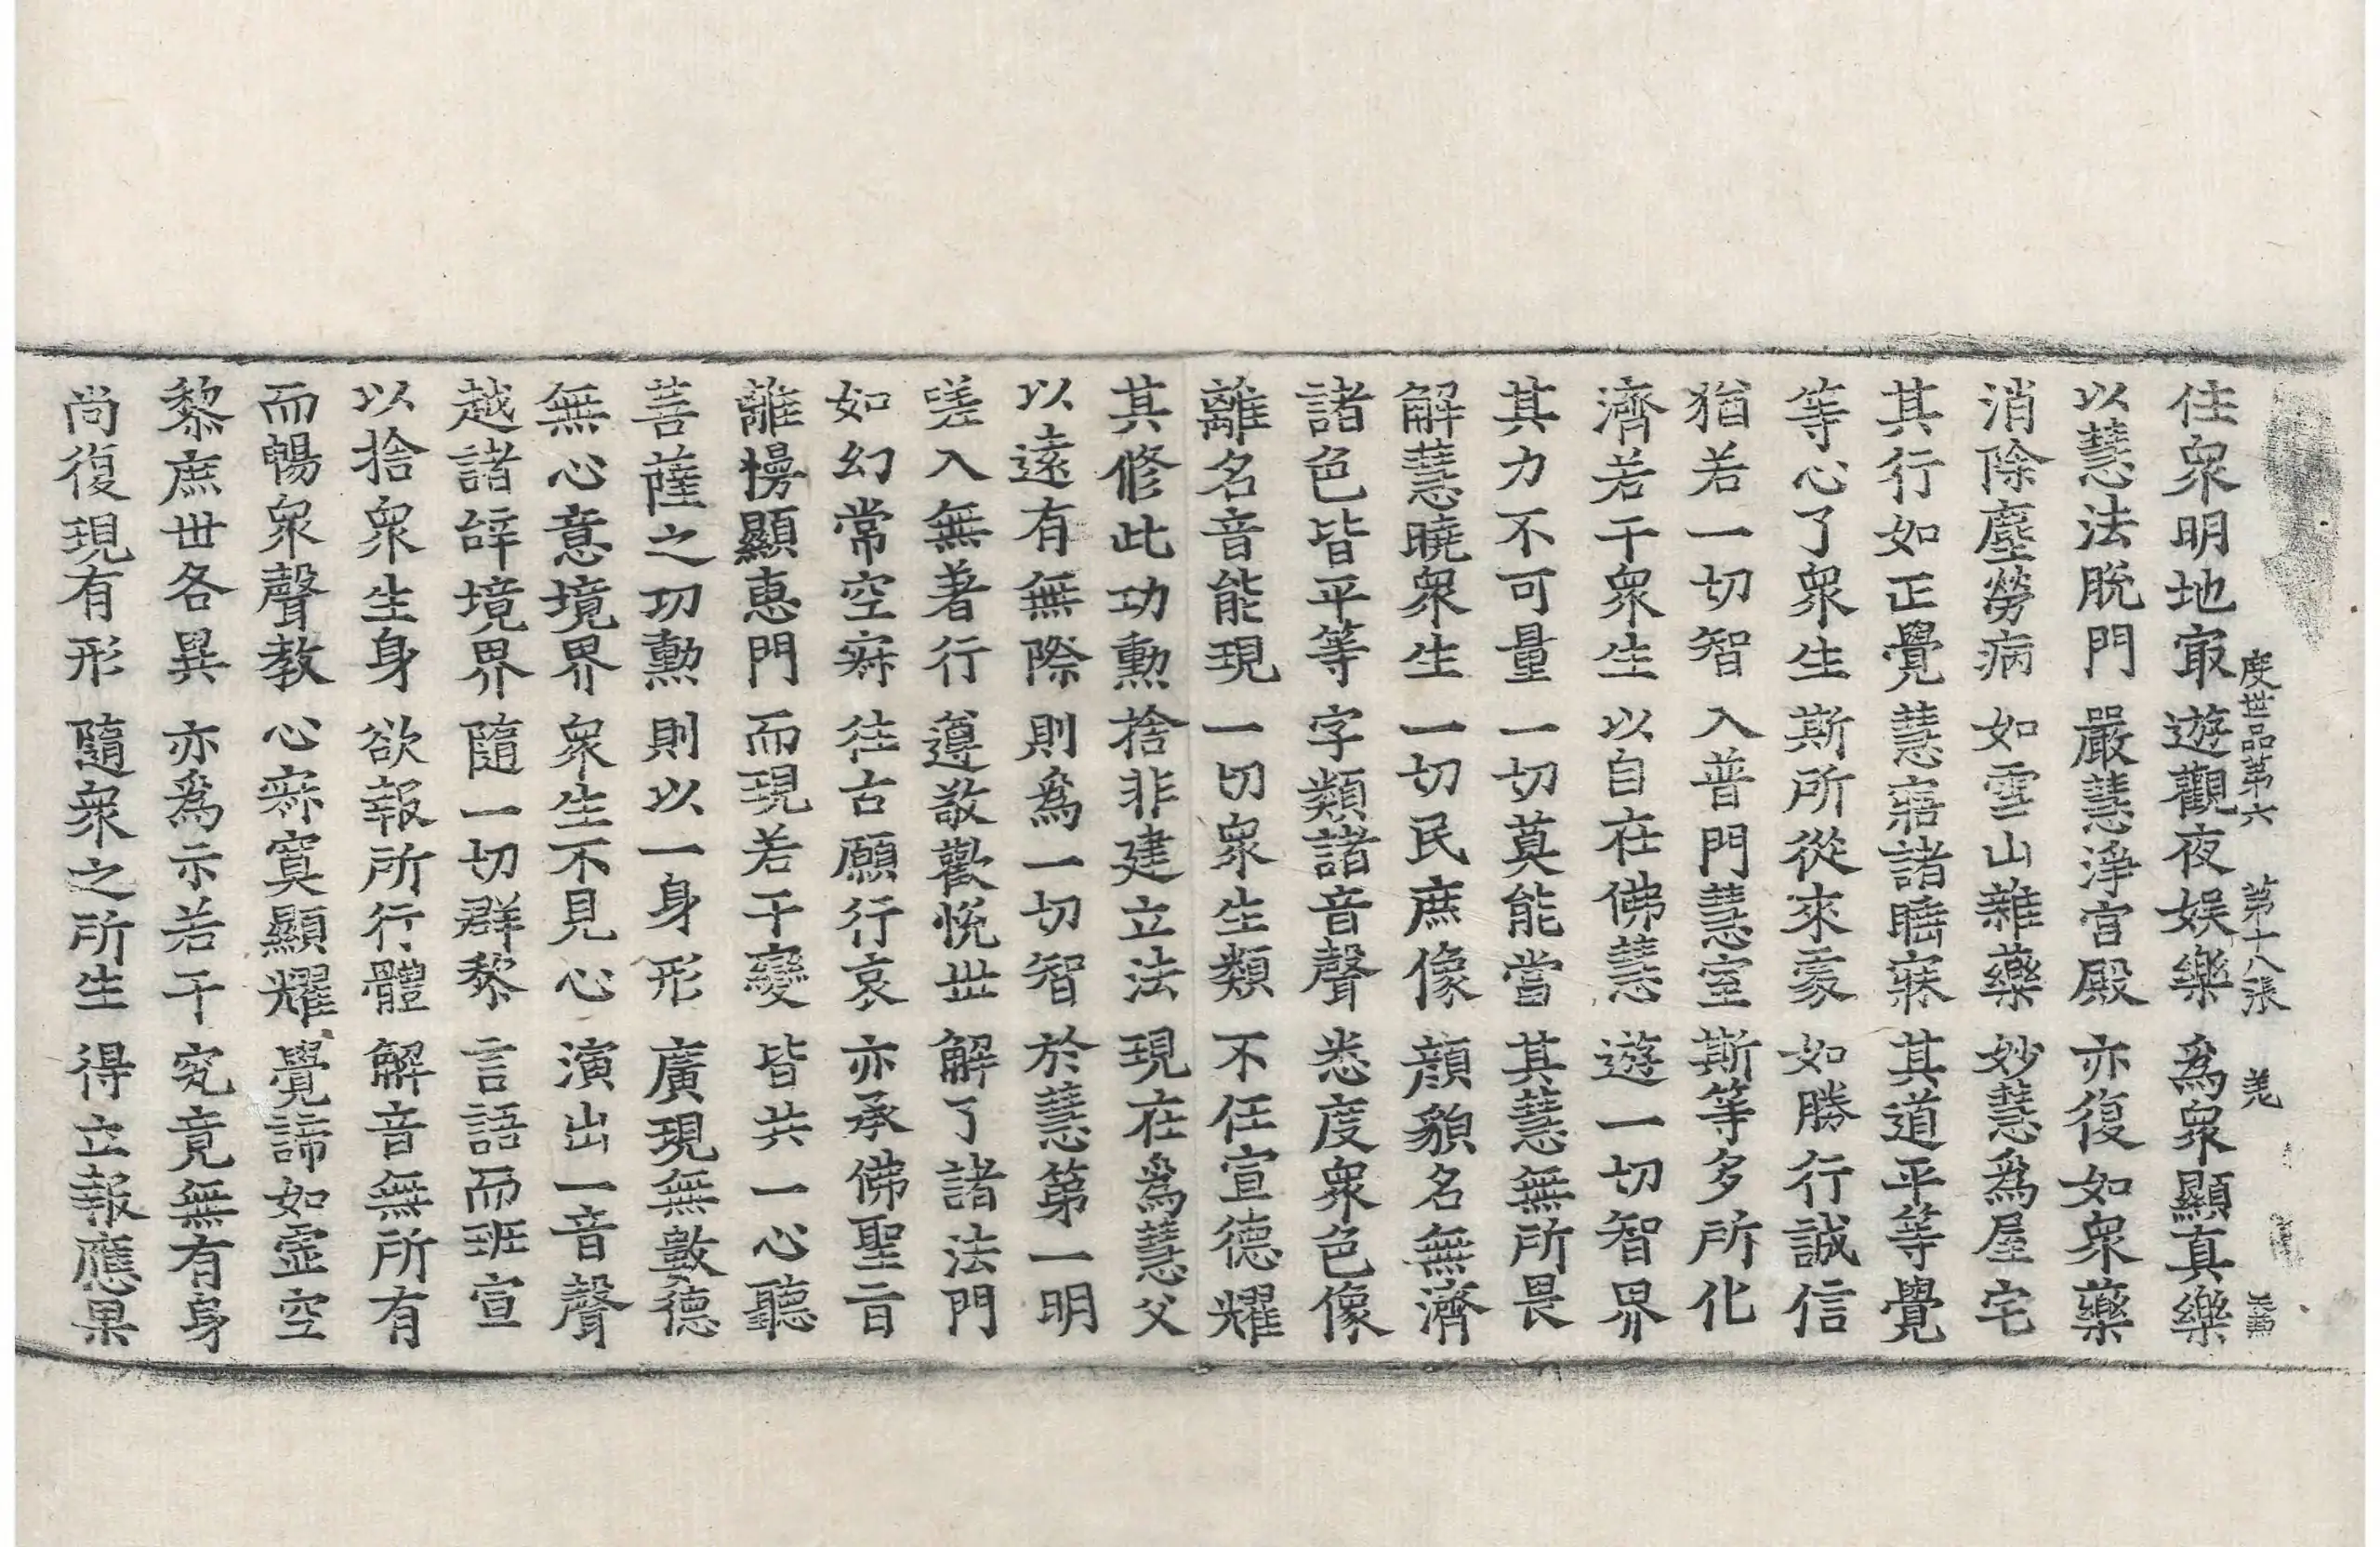 度世品第六 第十八張 羌
住衆明地㝡 遊觀夜娛樂 為衆顯真樂
以慧法脫門 嚴慧淨宫殿 亦復如衆藥
消除塵勞病 如雪山雜藥 妙慧為屋宅
其行如正覺 慧寤諸睡寐 其道平等覺
等心了衆生 斯所從來處 如勝行誠信
猶若一切智 入普門慧室 斯等多所化
濟若干衆生 以自在佛慧 遊一切智界
其力不可量 一切莫能當 其慧無所畏
解慧曉衆生 一切民庶像 顔貌名無濟
諸色皆平等 字類諸音聲 悉度衆色像
離名音能現 一切衆生類 不任宣德耀
其修此功勲 捨非建立法 現在為慧父
以逺有無際 則為一切智 於慧第一明
嗟入無著行 遵敬歡悅世 解了諸法門
如幻常空寂 往古願行哀 亦承佛聖旨
離慢顯惠門 而現若干變 皆共一心聽
菩薩之功勲 則以一身形 廣現無數德
無心意境界 衆生不見心 演出一音聲
越諸辝境界 隨一切群黎 言語而班宣
以捨衆生身 欲報所行體 解音無所有
而暢衆聲教 心寂寞顯耀 覺諦如虛空
黎庶世各異 亦為示若干 究竟無有身
尚復現有形 隨衆之所生 得立報應果